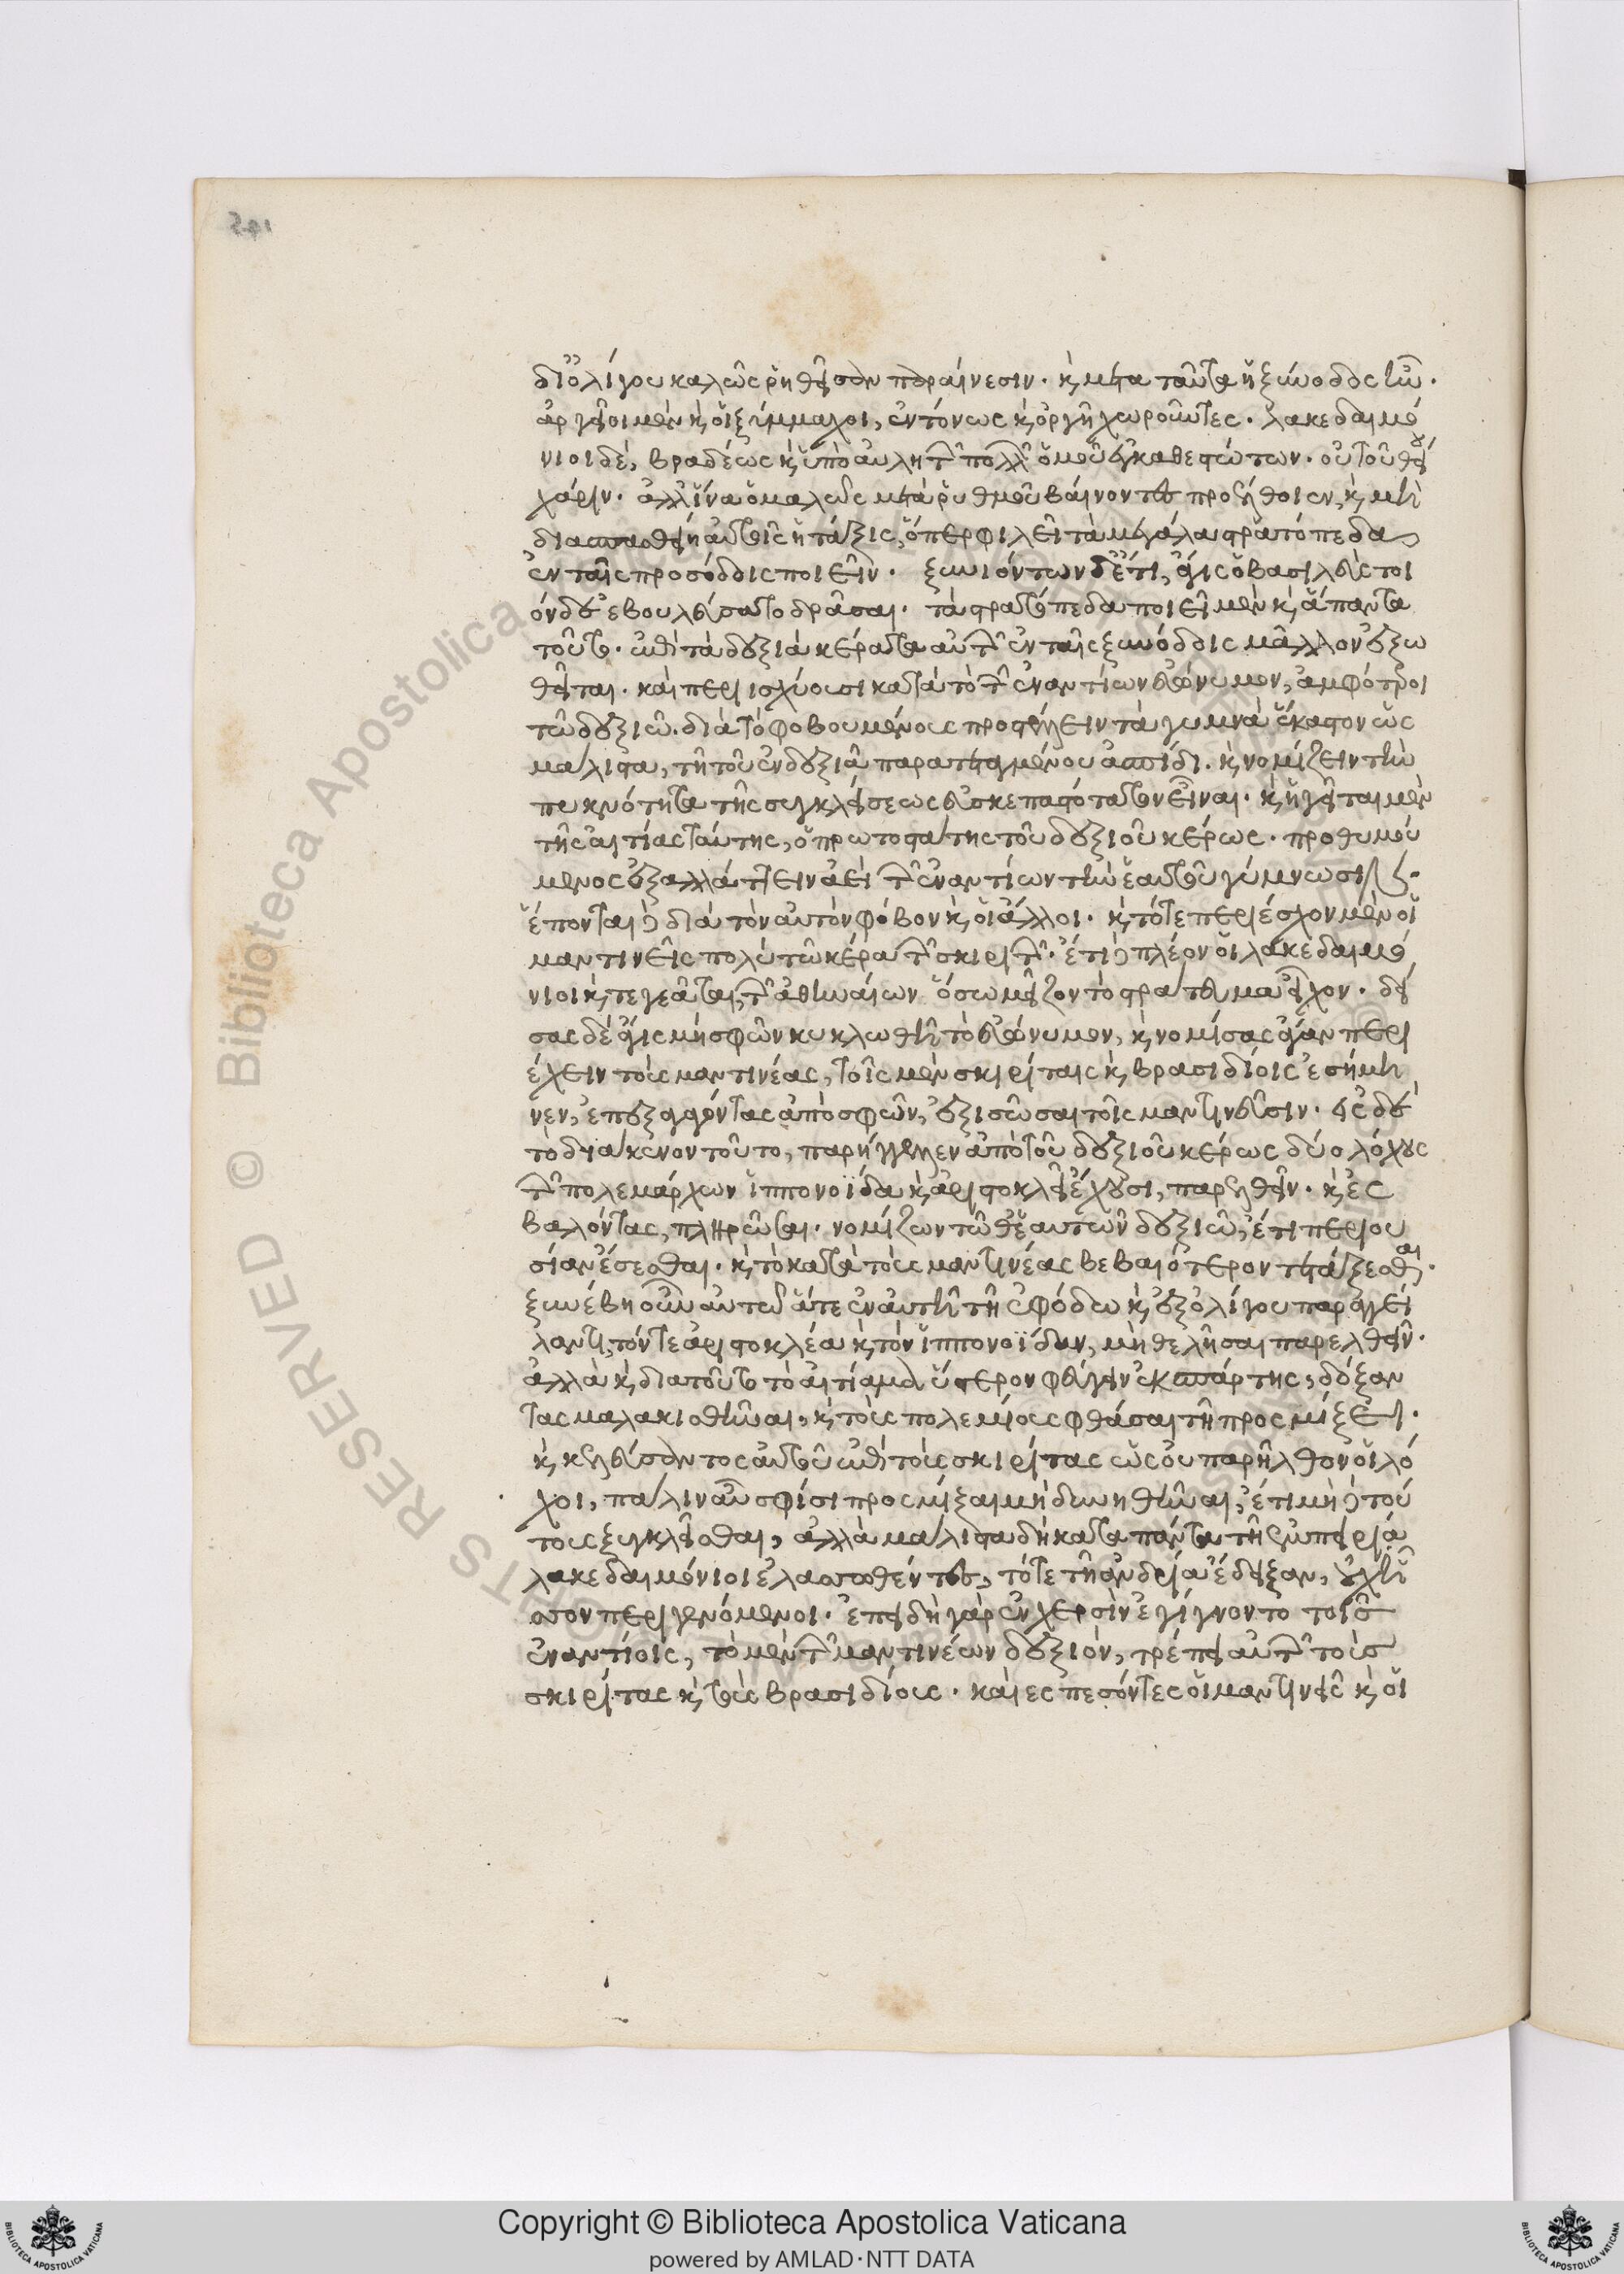 δι' ὀλίγου καλῶς ῥηθεῖσαν παραίνεσιν. καὶ μετὰ ταῦτα ἡ ξύνοδος ἦν.
ἀργεῖοι μὲν καὶ οἱ ξύμμαχοι, ἐντόνως καὶ ὀργῇ χωροῦντες. λακεδαιμό
νιοι δὲ, βραδέως καὶ ὑπὸ αὐλητῶν πολλῶν ὁμοῦ ἐγκαθεστώτων. οὐ τοῦ θείου
χάριν. ἀλλ' ἵνα ὁμαλῶς μετὰ ῥυθμοῦ βαίνοντες προέλθοιεν, καὶ μὴ
διασπασθείη αὐτοῖς ἡ τάξις, ὅπερ φιλεῖ τὰ μεγάλα στρατόπεδα
ἐν ταῖς προσόδοις ποιεῖν. ξυνιόντων δ' ἔτι, ἆγις ὁ βασιλεὺς τοι
όνδε ἐβουλεύσατο δρᾶσαι. τὰ στρατόπεδα ποιεῖ μὲν καὶ ἅπαντα
τοῦτο. ἐπὶ τὰ δεξιὰ κέρατα αὐτῶν ἐν ταῖς ξυνόδοις μᾶλλον ἐξω
θεῖται. καὶ περιισχύουσι κατὰ τὸ τῶν ἐναντίων εὐώνυμον, ἀμφότεροι
τῷ δεξιῷ. διὰ τὸ φοβουμένους προστέλλειν τὰ γυμνὰ ἕκαστον ὡς
μάλιστα, τῇ τοῦ ἐν δεξιᾷ παρατεταγμένου ἀσπίδι. καὶ νομίζειν τὴν
πυκνότητα τῆς συγκλῄσεως εὐσκεπαστότατον εἶναι. καὶ ἡγεῖται μὲν
τῆς αἰτίας ταύτης, ὁ πρωτοστάτης τοῦ δεξιοῦ κέρως. προθυμού
μενος ἐξαλλάττειν ἀεὶ τῶν ἐναντίων τὴν ἑαυτοῦ γύμνωσιν.
ἕπονται δὲ διὰ τὸν αὐτὸν φόβον καὶ οἱ ἄλλοι. καὶ τότε περιέσχον μὲν οἱ
μαντινεῖς πολὺ τῷ κέρᾳ τῶν σκιριτῶν. ἔτι δὲ πλέον οἱ λακεδαιμό
νιοι καὶ τεγεᾶται, τῶν ἀθηναίων ὅσῳ μεῖζον τὸ στράτευμα εἶχον. δεί
σας δὲ ἆγις μὴ σφῶν κυκλωθῇ τὸ εὐώνυμον, καὶ νομίσας ἄγαν περι
έχειν τοὺς μαντινέας, τοῖς μὲν σκιρίταις καὶ βρασιδίοις ἐσήμη
νεν, ἐπεξαγαγόντας ἀπὸ σφῶν, ἐξισῶσαι τοῖς μαντινεῦσιν. ἐς δὲ
τὸ διάκενον τοῦτο, παρήγγελλεν ἀπὸ τοῦ δεξιοῦ κέρως δύο λόχους
τῶν πολεμάρχων ἱππονοΐδα καὶ ἀριστοκλεῖ ἔχουσι, παρελθεῖν. καὶ ἐς
βαλόντας, πληρῶσαι. νομίζων τῷ θ' ἑαυτῶν δεξιῷ, ἔτι περιου
σίαν ἔσεσθαι. καὶ τὸ κατὰ τοὺς μαντινέας βεβαιότερον τετάξεσθαι.
ξυνέβη οὖν αὐτῷ ἅτε ἐν αὐτῇ τῇ ἐφόδῳ καὶ ἐξ ὀλίγου παραγγεί
λαντι, τόν τε ἀριστοκλέα καὶ τὸν ἱππονοΐδαν, μὴ θελῆσαι παρελθεῖν.
ἀλλὰ καὶ διὰ τοῦτο τὸ αἰτίαμα ὕστερον φεύγειν ἐκ σπάρτης, δόξαν
τας μαλακισθῆναι. καὶ τοὺς πολεμίους φθάσαι τῇ προσμίξει.
καὶ κελεύσαντος αὐτοῦ ἐπὶ τοὺς σκιρίτας ὡς οὐ παρῆλθον οἱ λό
χοι, πάλιν αὖ σφίσι προσμίξαι μὴ δυνηθῆναι, ἔτι μὴ δὲ τού
τους ξυγκλεῖσθαι, ἀλλὰ μάλιστα δὴ κατὰ πάντα τῇ ἐμπειρίᾳ
λακεδαιμόνιοι ἐλασσωθέντες, τότε τῇ ἀνδρίᾳ ἔδειξαν, οὐχ ἧς
σον περιγενόμενοι. ἐπειδὴ γὰρ ἐν χερσὶν ἐγίγνοντο τοῖς
ἐναντίοις, τὸ μὲν τῶν μαντινέων δεξιὸν, τρέπει αὐτῶν τοὺς
σκιρίτας καὶ τοὺς βρασιδίους. καὶ ἐσπεσόντες οἱ μαντινεῖς καὶ οἱ
Copyright © Biblioteca Apostolica Vaticana
powered by AMLAD·NTT DATA